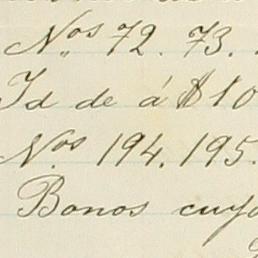 Nos 72. 73.
Id de á $10
Nos 194. 195.
Bonos cuyo